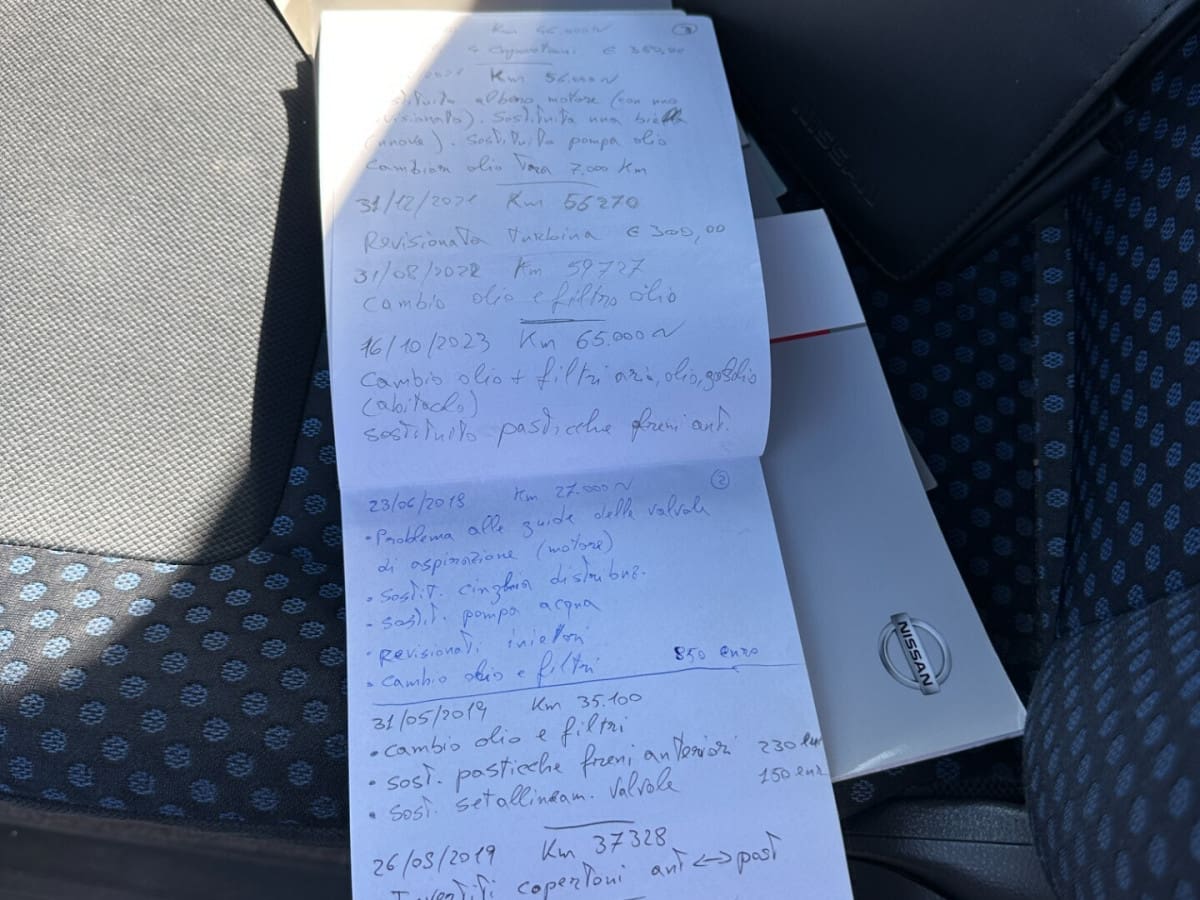 Km 46.000 ~ 3
4 copertoni € 360,00
2021 Km 56.000 ~
albero motore (con uno
). Sostituita una biella
(nuova). Sostituita pompa olio
Cambiare olio tra 7.000 Km
31/12/2021 Km 56270
Revisionata turbina € 300,00
31/08/2022 Km 59727
Cambio olio e filtro olio
16/10/2023 Km 65.000 ~
Cambio olio + filtri aria, olio, gasolio
(abitacolo)
sostituito pasticche freni ant.
23/06/2018 Km 27.000 ~ 2
• Problema alle guide delle valvole
di aspirazione (motore)
• Sostit. cinghia distribuz.
• Sost. pompa acqua
• Revisionati iniettori
• Cambio olio e filtri 850 euro
31/05/2019 Km 35.100
• Cambio olio e filtri
• Sost. pasticche freni anteriori 230 eur
• Sost. set allineam. valvole 150 eur
26/09/2019 Km 37328
Invertiti copertoni ant <-> post
NISSAN
NISSAN